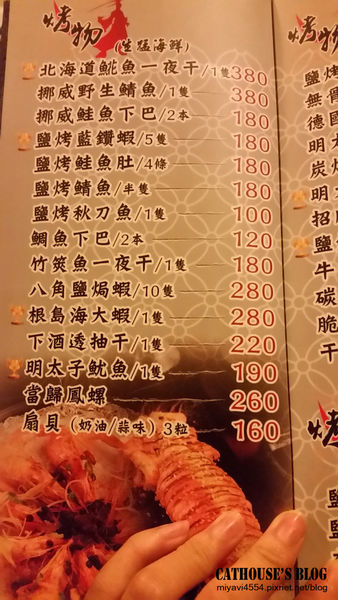 烤物
(生猛海鮮)
北海道魷魚一夜干/1隻 380
挪威野生鯖魚/1隻 380
挪威鮭魚下巴/2本 180
鹽烤藍鑽蝦/5隻 180
鹽烤鮭魚肚/4條 180
鹽烤鯖魚/半隻 180
鹽烤秋刀魚/1隻 100
鯛魚下巴/2本 120
竹筴魚一夜干/1隻 180
八角鹽焗蝦/10隻 280
根島海大蝦/1隻 280
下酒透抽干/1隻 220
明太子魷魚/1隻 190
當歸鳳螺 260
扇貝(奶油/蒜味)3粒 160
烤物
鹽烤
無骨
德國
明太
炭烤
明太
招
鹽
牛
碳
脆
干
烤
CATHOUSE'S BLOG
miyavi4554.pixnet.net/blog